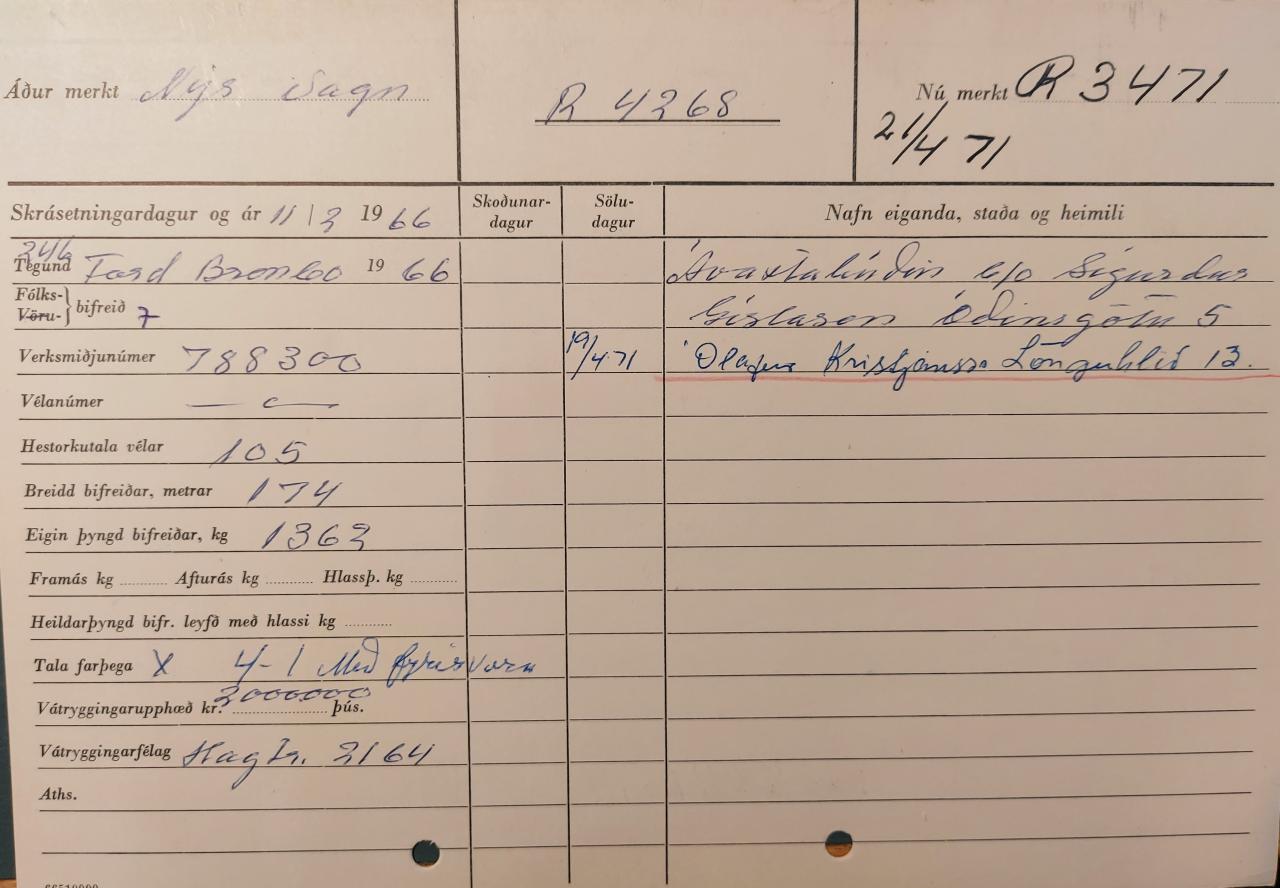 Áður merkt Nýs vagn
R 4268
Nú merkt R 3471
21/4 71
Skrásetningardagur og ár 11/2 1966
Skoðunar-
dagur
Sölu-
dagur
Nafn eiganda, staða og heimili
Tegund Ford Bronco 1966
Ávaxtalindin c/o Sigurdur
Fólks-
Vöru- } bifreið 7
Gíslason Óðinsgötu 5
Verksmiðjunúmer 788300
19/4 71
Ólafur Kristjánsson Lönguhlíð 13.
Vélanúmer
Hestorkutala vélar 105
Breidd bifreiðar, metrar 174
Eigin þyngd bifreiðar, kg 1362
Framás kg Afturás kg Hlassþ. kg
Heildarþyngd bifr. leyfð með hlassi kg
Tala farþega X 4-1 Með fyrirvara
Vátryggingarupphæð kr. þús.
Vátryggingarfélag Hagtr. 2164
Aths.